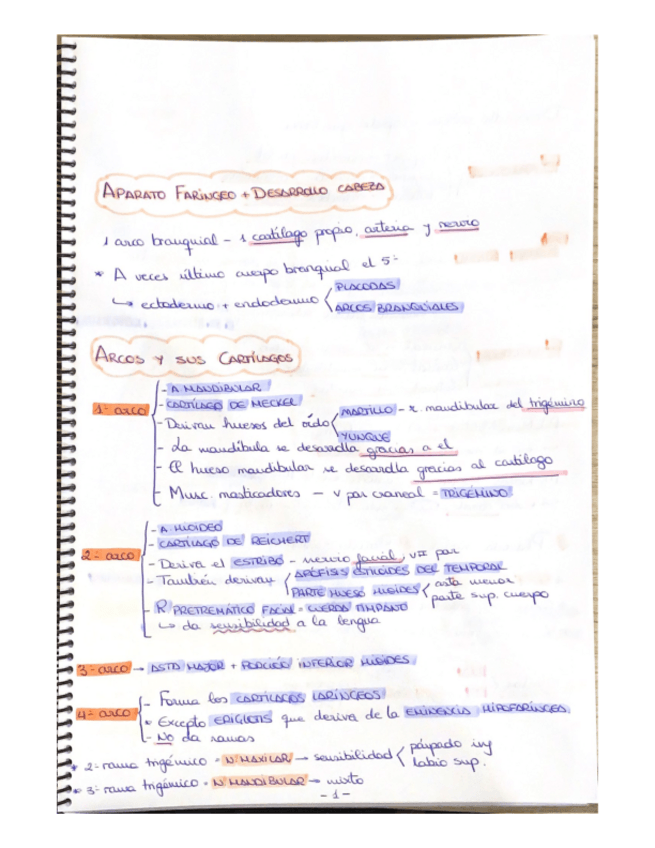 APARATO FARÍNGEO + DESARROLLO CABEZA
1 arco branquial - 1 cartílago propio, arteria y nervio
* A veces último cuerpo branquial el 5º
↳ ectodermo + endodermo < PLACODAS
ARCOS BRANQUIALES
ARCOS Y SUS CARTÍLAGOS
1º arco
- A MANDIBULAR
- CARTÍLAGO DE MECKEL
- Derivan huesos del oído < MARTILLO - r. mandibular del trigémino
YUNQUE
- La mandíbula se desarrolla gracias a el
- El hueso mandibular se desarrolla gracias al cartílago
- Musc. masticadores - V par craneal = TRIGÉMINO
2º arco
- A. HIOIDEO
- CARTÍLAGO DE REICHERT
- Deriva el ESTRIBO - nervio facial, VII par
- También derivan < APÓFISIS ESTILOIDES DEL TEMPORAL
PARTE HUESO HIOIDES < asta menor
parte sup. cuerpo
- R PRETREMÁTICO FACIAL = CUERDA TÍMPANO
↳ da sensibilidad a la lengua
3º arco → ASTA MAJOR + PORCIÓN INFERIOR HIOIDES
4º arco
- Forma los CARTÍLAGOS LARÍNGEOS
• Excepto EPIGLOTIS que deriva de la EMINENCIA HIPOFARÍNGEA
- NO da ramas
* 2º rama trigémico = N. MAXILAR → sensibilidad < párpado inf
labio sup.
* 3º rama trigémico = N MANDIBULAR → mixto
- 1 -